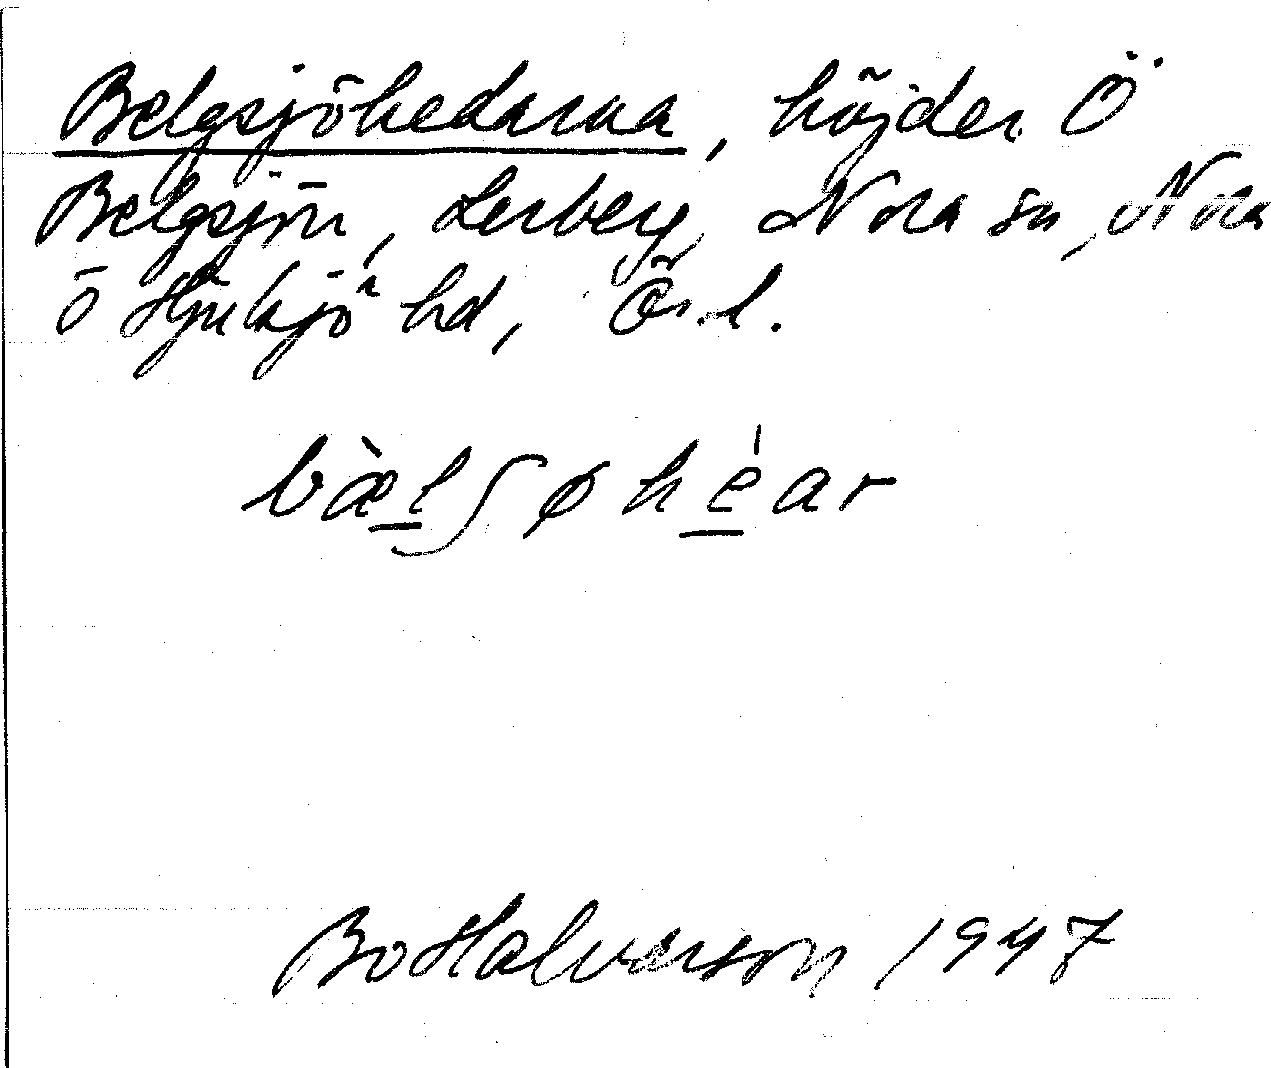 Belgsjöhedarna, höjder Ö
Belgsjön, Lerberg, Nora sn, Nora
o Hjulsjö hd, Ör. l.
bæ̀lʃøhéar
Bo Halvarson 1947